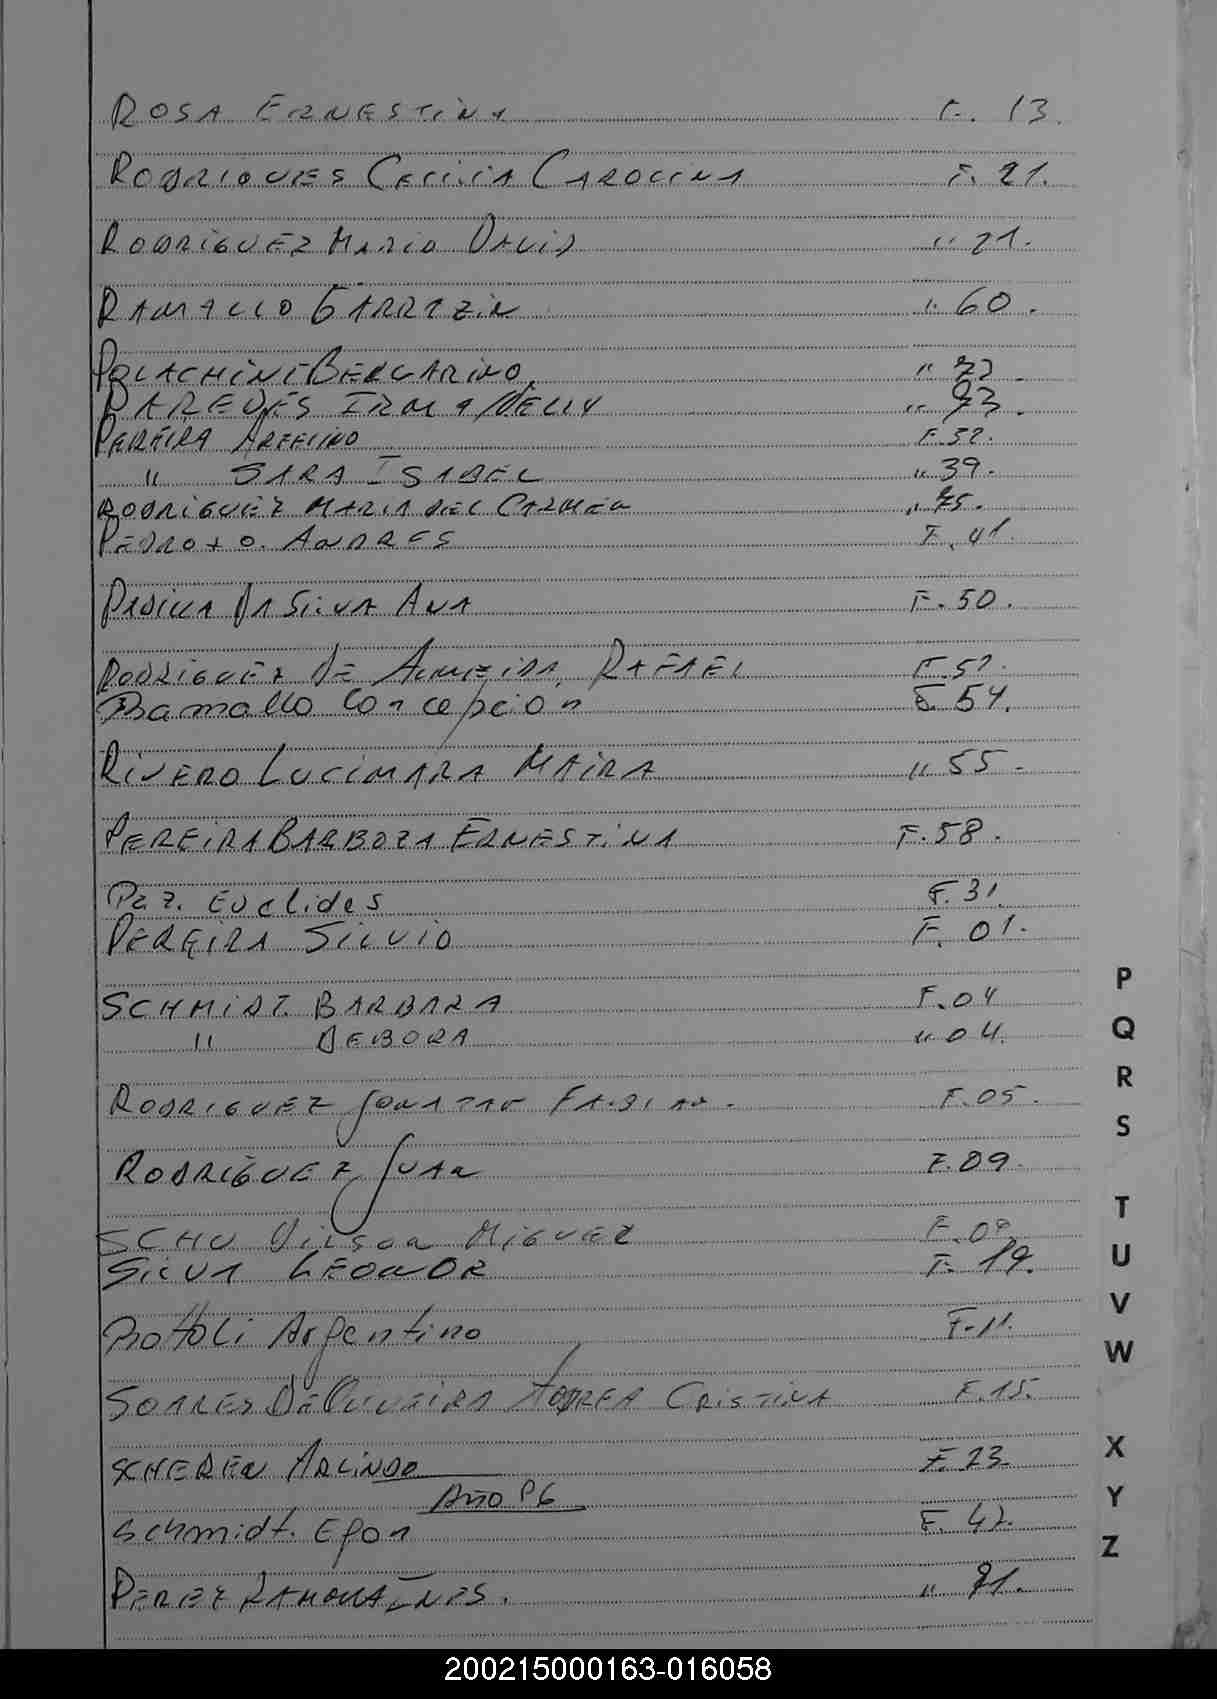 ROSA ERNESTINA F. 13.
RODRIGUES CECILIA CAROLINA F. 21.
RODRIGUEZ MARIO DAVID " 21.
RAMALLO GARRAZIN " 60.
POLACHINI BELCARINO "
PAREDES IRMA NELLY " 93.
PEREIRA F. 32.
" SARA ISABEL " 39.
RODRIGUEZ MARIA DEL CARMEN " 75.
PEDROZO. ANDRES F. 41.
PADILLA DA SILVA ANA F. 50.
RODRIGUEZ DE ALMEIDA, RAFAEL F. 52.
Ramallo Concepcion F. 54.
RIVERO LUCIMARA MAIRA " 55.
PEREIRA BARBOZA ERNESTINA F. 58.
Paz. Euclides F. 31.
PEREIRA SILVIO F. 01.
SCHMIDT. BARBARA F. 04
" DEBORA " 04.
RODRIGUEZ JONATAN FABIAN. F. 05.
RODRIGUEZ JUAN F. 09.
SCHU VILSON MIGUEL F. 09.
SILVA LEONOR F. 19.
Rottoli Argentino F. 11.
SOARES DE OLIVEIRA ANDREA CRISTINA F. 15.
SCHEREN ARLINDO F. 23.
Año 96
Schmidt. Egon F. 42.
PEREZ RAMONA INES. " 91.
P
Q
R
S
T
U
V
W
X
Y
Z
200215000163-016058